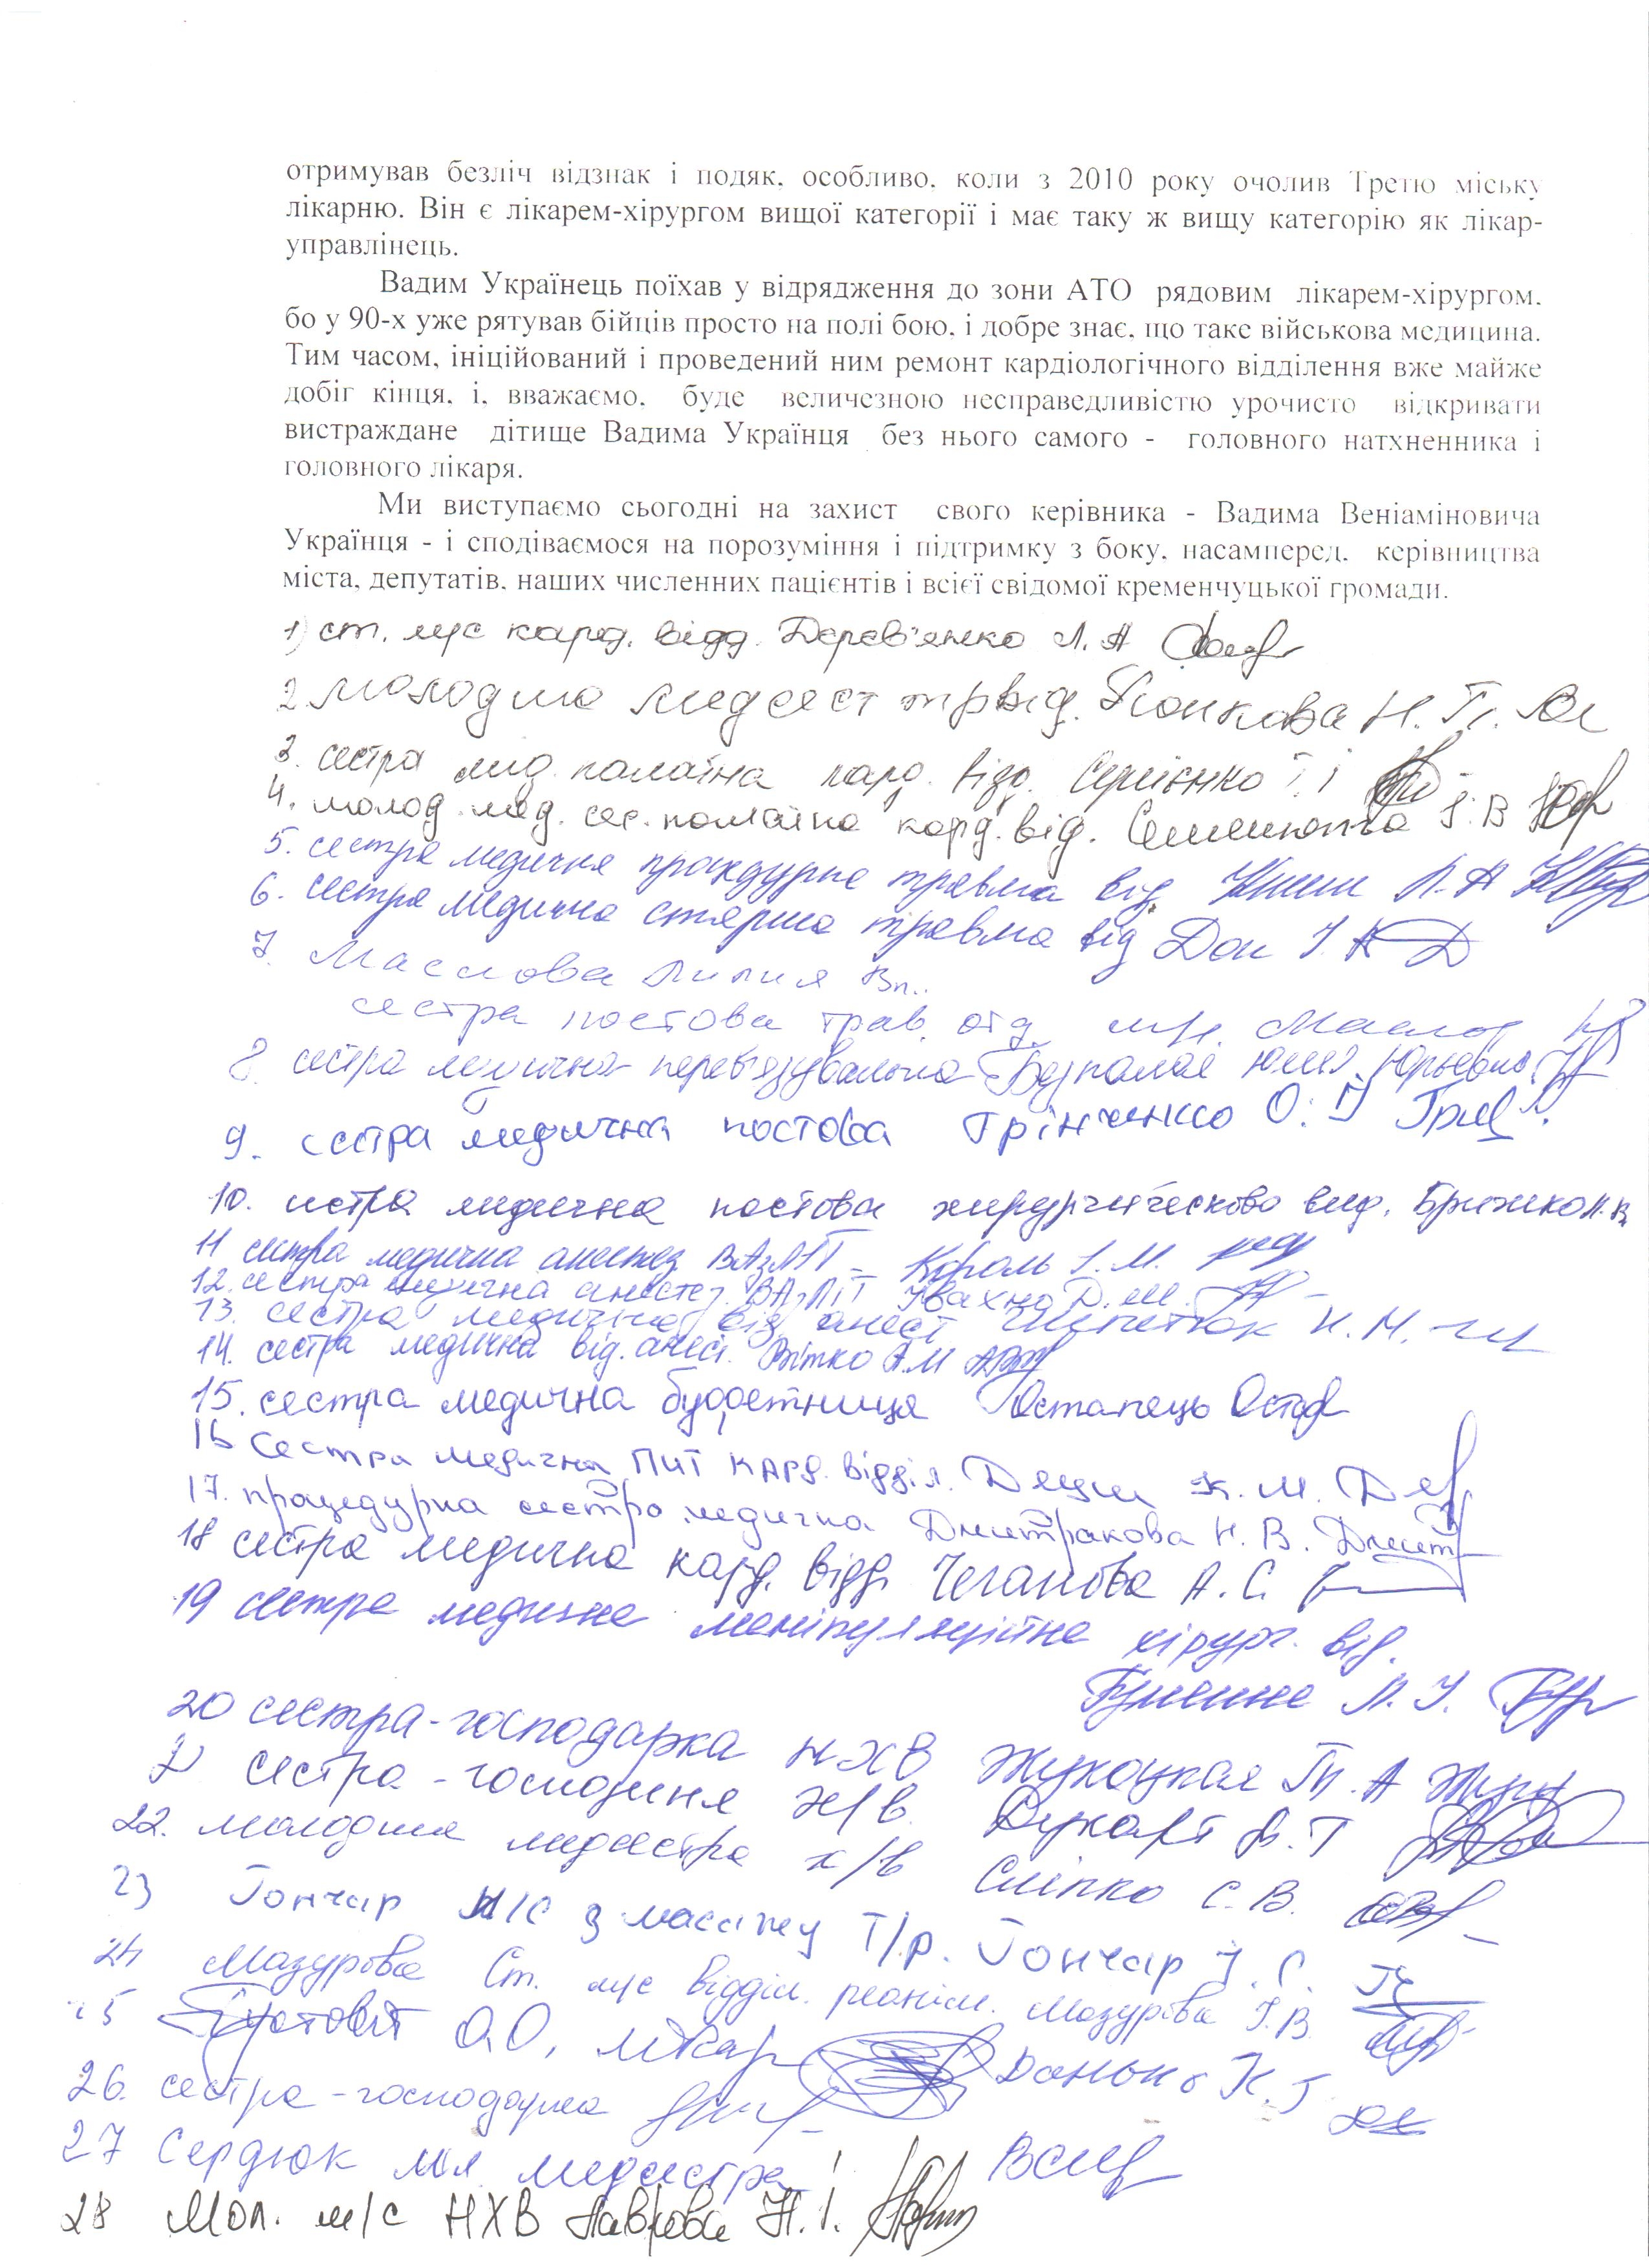 отримував безліч відзнак і подяк, особливо, коли з 2010 року очолив Третю міську
лікарню. Він є лікарем-хірургом вищої категорії і має таку ж вищу категорію як лікар-
управлінець.
Вадим Українець поїхав у відрядження до зони АТО рядовим лікарем-хірургом,
бо у 90-х уже рятував бійців просто на полі бою, і добре знає, що таке військова медицина.
Тим часом, ініційований і проведений ним ремонт кардіологічного відділення вже майже
добіг кінця, і, вважаємо, буде величезною несправедливістю урочисто відкривати
вистраждане дітище Вадима Українця без нього самого - головного натхненника і
головного лікаря.
Ми виступаємо сьогодні на захист свого керівника - Вадима Веніаміновича
Українця - і сподіваємося на порозуміння і підтримку з боку, насамперед, керівництва
міста, депутатів, наших численних пацієнтів і всієї свідомої кременчуцької громади.
1) ст. м/с кард. відд. Дерев'янко Л. А
2 молодша медсест Н. П.
3. сестра мед. палатна кард. відд. Сергієнко Т. І
4. молод. мед. сес. палатна кард. від. І. В
5. сестра медична процедурна травма від Л. А
6. сестра медична старша травма від Дон І. А
7. Маслова Лилия Вл.
сестра постова трав. отд. м/с.
8. сестра медична перев'язувальна
9. сестра медична постова Грінченко О. І
10. сестра медична постова від. Брижко
11 сестра медична анестез ВАзЛІТ - Король І. М.
12. сестра медична анестез. ВАзЛІТ Івахно Д. М.
13. сестра медична від анест Н. М.
14. сестра медична від. анест. Вітко А. М
15. сестра медична буфетниця Остапець
16 Сестра медична ПИТ кард. відділ. К. М.
17. процедурна сестра медична Дмитракова Н. В.
18 сестра медична кард. відд. Чеганова А. С.
19 сестра медична маніпуляційна хірург. від.
Л. І.
20 сестра-господарка НХВ Жукоцкая Т. А
21 сестра - господиня х/в. Т
22. молодша медсестра х/в Сліпко С. В.
23 Гончар м/с з масажу Т/р. Гончар І. С.
24 Мазурова Ст. м/с відділ. реанім. Мазурова І. В.
25 О. О, лікар
26. сестра - господарка Данько К. Г
27 Сердюк мол медсестра
28 Мол. м/с НХВ Лаврова Н. І.